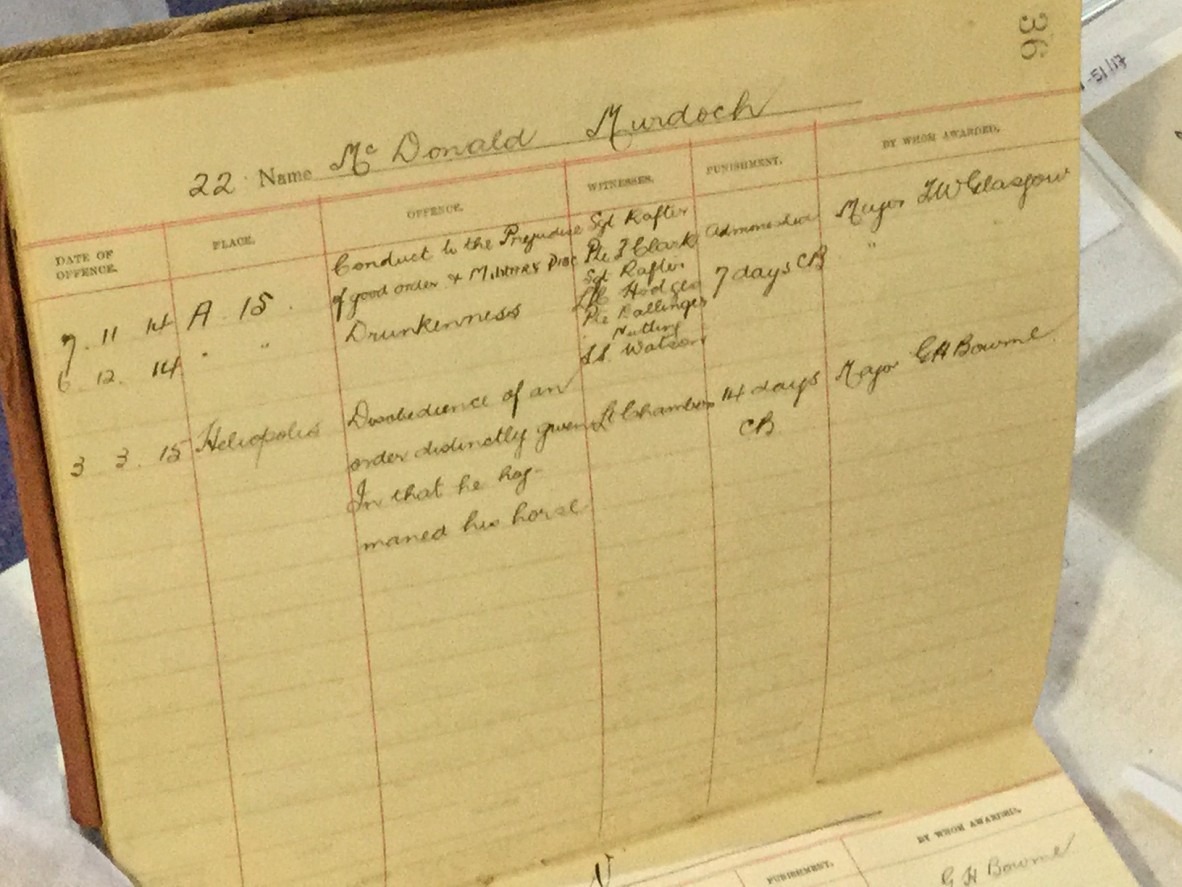 36
-51/17
22 Name Mc Donald Murdoch
DATE OF OFFENCE. PLACE. OFFENCE. WITNESSES. PUNISHMENT. BY WHOM AWARDED.
7. 11 14 A. 15. Conduct to the Prejudice Sgt Rafter Admonished Major T W Glasgow
of good order & MILITARY DISC Pte F Clark
6. 12. 14 " " Drunkenness Sgt Rafter 7 days CB "
L/C Hodges
Pte Ballinger
Nutting
S.S. Watson
3 3. 15 Heliopolis Disobedience of an Lt Chambers 14 days Major G H Bourne
order distinctly given CB
In that he hog-
maned his horse
N
PUNISHMENT. BY WHOM AWARDED.
G H Bourne